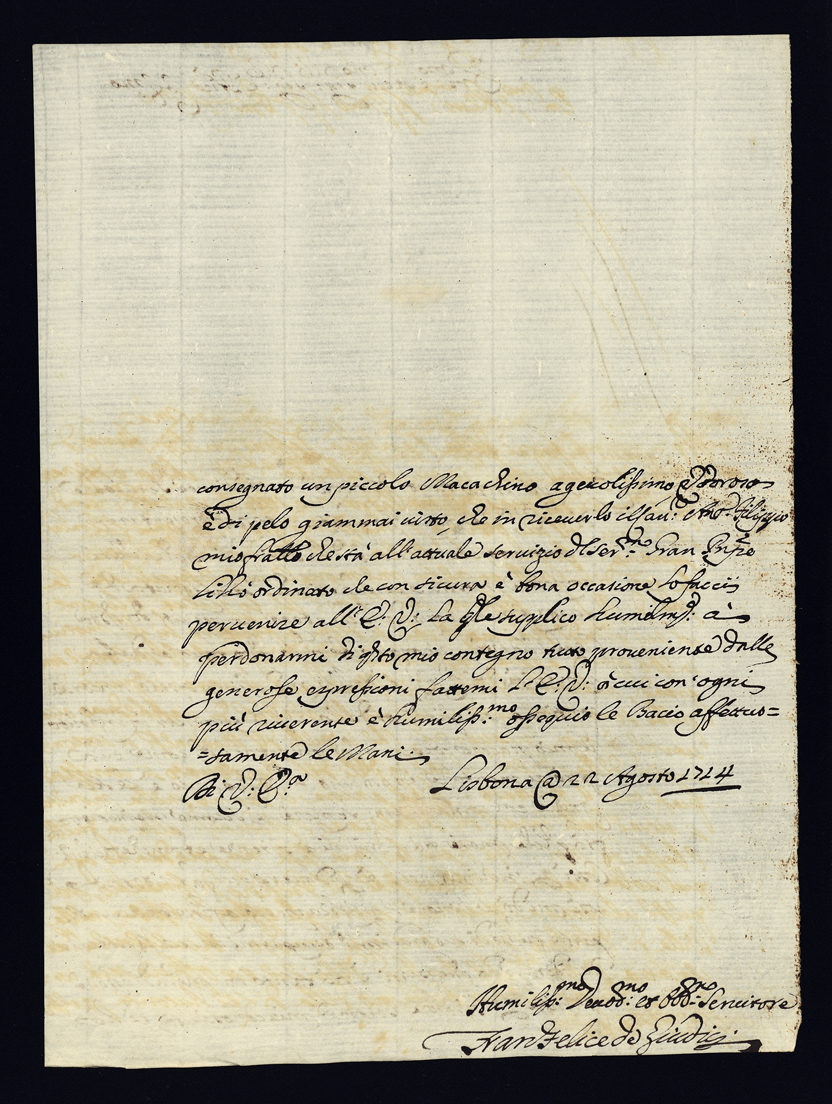 consegnato un piccolo Macachino agevolissimo Odoroso
è di pelo giammai visto, che in riceverlo il Filippo
mio fratello che stà all'attuale servizio del Ser.mo Gran
li hò ordinato che con sicura è bona occasione lo faccij
pervenire all' E: V: La q.le supplico humilm.te à
perdonarmi di q.sto mio contegno tutto proveniente dalle
generose espressioni fattemi E: V: à cui con ogni
più riverente è humiliss:mo ossequio le Bacio affettuo=
=samente le Mani
Di V: E:a Lisbona @ 22 Agosto 1714
Humiliss:mo Devot:mo et obb:mo Servitore
Fran Felice de Giudicj